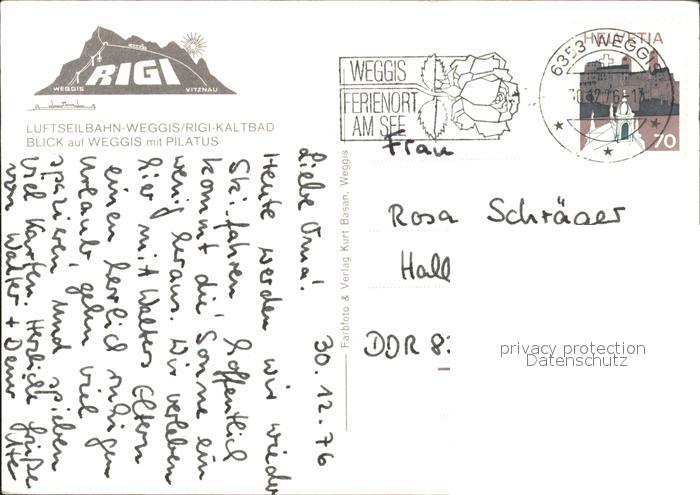 RIGI
WEGGIS VITZNAU
LUFTSEILBAHN-WEGGIS/RIGI-KALTBAD
BLICK auf WEGGIS mit PILATUS
30.12.76
Liebe Oma!
Heute werden wir wieder
Ski fahren. Hoffentlich
kommt die Sonne ein
wenig heraus. Wir verleben
hier mit Walters Eltern
einen herrlich ruhigen
Urlaub, gehn viel
spazieren, und spielen
viel Karten. Herzliche Grüße
von Walter + Deiner Ute
Farbfoto & Verlag Kurt Basan, Weggis
WEGGIS
FERIENORT
AM SEE
6353 WEGGIS
HELVETIA
70
Frau
Rosa Schräger
Hall
DDR 8
privacy protection
Datenschutz